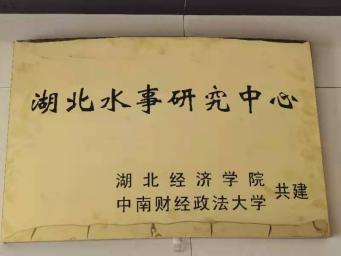 湖北水事研究中心
湖北经济学院
中南财经政法大学
共建